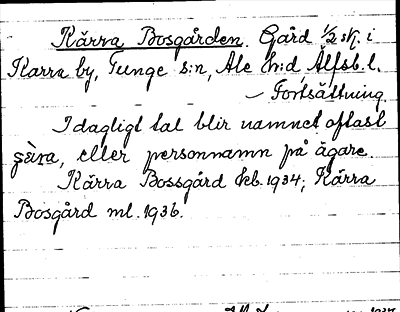 Kärra Bosgården. Gård 1/2 sk. i
Karra by, Tunge s:n, Ale h:d, Älfsb. l.
— Fortsättning
I dagligt tal blir namnet oftast
gära, eller personnamn på ägare.
Kärra Bossgård kb. 1934; Kärra
Bosgård ml. 1936.